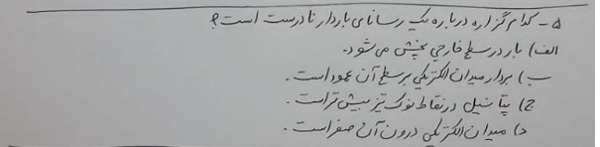 ۵- کدام گزاره درباره یک رسانای باردار نادرست است؟
الف) بار در سطح خارجی پخش می‌شود.
ب) بردار میدان الکتریکی بر سطح آن عمود است.
ج) پتانسیل در نقاط نوک تیز بیش‌تر است.
د) میدان الکتریکی درون آن صفر است.